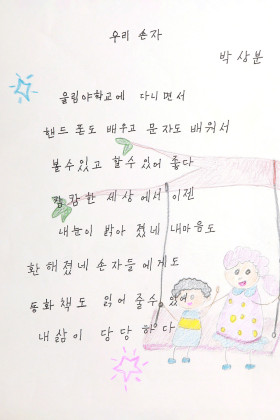 우리 손자
박상분
울림야학교에 다니면서
핸드폰도 배우고 문자도 배워서
볼수있고 할수있어 좋다
캄캄한 세상에서 이젠
내눈이 밝아 졌네 내마음도
환해졌네 손자들에게도
동화책도 읽어 줄수있어
내삶이 당당하다